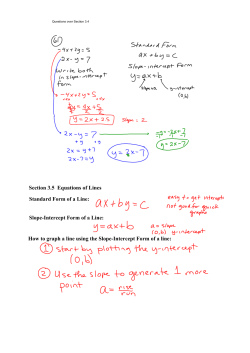 Questions over Section 3.4
61)
-4x+2y=5
2x-y=7
Write both
in slope-intercept
form
Standard Form
ax+by=c
Slope-intercept Form
y=ax+b
slope=a
y-intercept
(0,b)
-4x+2y=5
+4x +4x
2y = 4x+5
2 2
y=2x+2.5
slope=2
2x-y=7
+y +y
2x=y+7
2x-7=y
y=2x-7
y=2x-7
Section 3.5 Equations of Lines
Standard Form of a Line:
ax+by=c
easy to get intercepts
not good for quick
graphs
Slope-Intercept Form of a Line:
y=ax+b
a=slope
(0,b) y-intercept
How to graph a line using the Slope-Intercept Form of a line:
1 start by plotting the y-intercept
(0,b)
2 Use the slope to generate 1 more
point a=rise
run